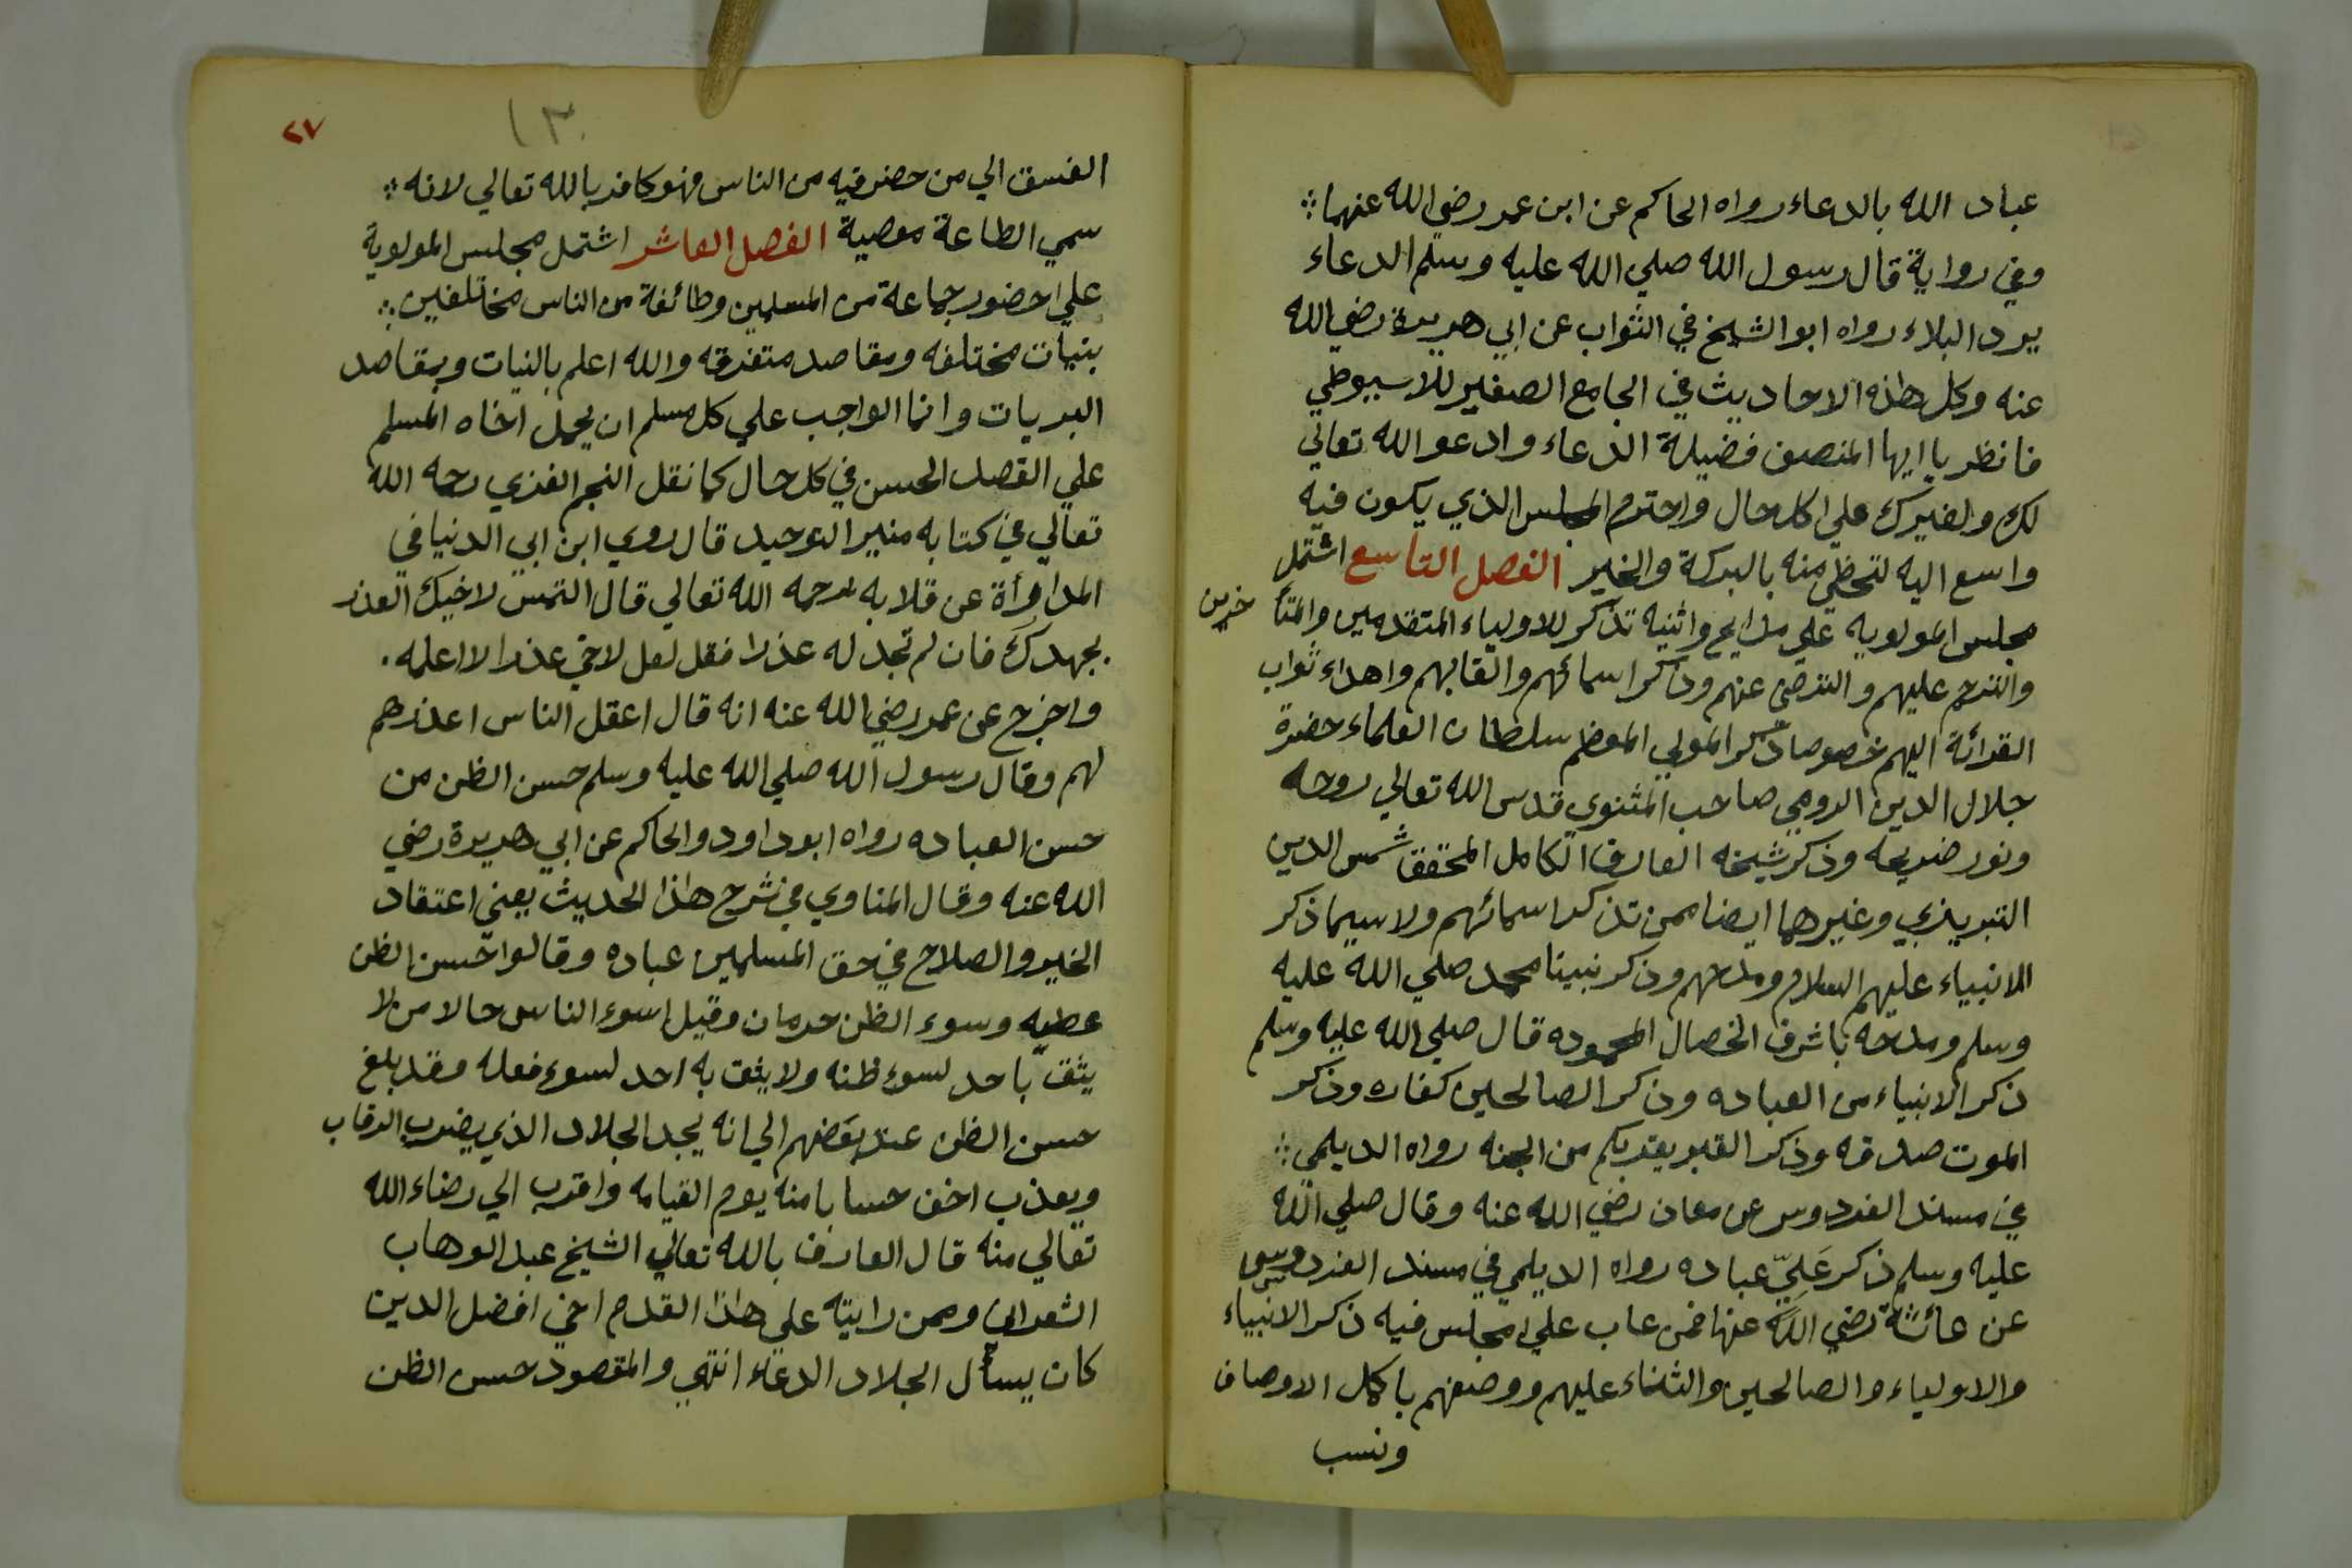 عباد الله بالدعاء رواه الحاكم عن ابن عمر رضي الله عنهما
وفي رواية قال رسول الله صلي الله عليه وسلم الدعاء
يرد البلاء رواه ابو الشيخ في الثواب عن ابي هريرة رضي الله
عنه وكل هذه الاحاديث في الجامع الصغير للاسيوطي
فانظر يا ايها المنصف فضيلة الدعاء وادعو الله تعالي
لك ولغيرك علي كل حال واحترم المجلس الذي يكون فيه
واسع اليه لتحظي منه بالبركة والخير الفصل التاسع اشتمل
مجلس المولويه علي مدايح واثنيه تذكر للاولياء المتقدمين والمتأ خرين
والترحم عليهم والترضي عنهم وذكر اسمائهم والقابهم واهداء ثواب
القرائة اليهم خصوصا ذكر المولي المعظم سلطان العلماء حضرة
جلال الدين الرومي صاحب المثنوي قدس الله تعالي روحه
ونور ضريحه وذكر شيخه العارف الكامل المحقق شمس الدين
التبريزي وغيرهما ايضا ممن تذكر اسمائهم ولا سيما ذكر
الانبياء عليهم السلام ومدحهم وذكر نبينا محمد صلي الله عليه
وسلم ومدحه باشرف الخصال المحموده قال صلي الله عليه وسلم
ذكر الانبياء من العباده وذكر الصالحين كفاره وذكر
الموت صدقه وذكر القبر يقربكم من الجنه رواه الديلمي
في مسند الفردوس عن معاذ رضي الله عنه وقال صلي الله
عليه وسلم ذكر عَلِيّ عباده رواه الديلمي في مسند الفردوس
عن عائشة رضي الله عنها فمن عاب علي مجلس فيه ذكر الانبياء
والاولياء والصالحين والثناء عليهم ووصفهم باكمل الاوصاف
ونسب
٢٧
١٣٠
الفسق الي من حضر فيه من الناس فهو كافر بالله تعالي لانه
سمي الطاعة معصية الفصل العاشر اشتمل مجلس المولوية
علي حضور جماعة من المسلمين وطائفة من الناس مختلفين
بنيات مختلفه ومقاصد متفرقه والله اعلم بالنيات وبمقاصد
البريات وانما الواجب علي كل مسلم ان يحمل اخاه المسلم
علي القصد الحسن في كل حال كما نقل النجم الغزي رحمه الله
تعالي في كتابه منبر التوحيد قال روي ابن ابي الدنيا في
المداوأة عن قلابه رحمه الله تعالي قال التمس لاخيك العذر
بجهدك فان لم تجد له عذرا فقل لعل لاخي عذرا لا اعلمه
واخرج عن عمر رضي الله عنه انه قال اعقل الناس اعذرهم
لهم وقال رسول الله صلي الله عليه وسلم حسن الظن من
حسن العباده رواه ابو داود والحاكم عن ابي هريرة رضي
الله عنه وقال المناوي في شرح هذا الحديث يعني اعتقاد
الخير والصلاح في حق المسلمين عباده وقالوا حسن الظن
عطيه وسوء الظن حرمان وقيل اسوء الناس حالا من لا
يثق باحد لسوء ظنه ولا يثق به احد لسوء فعله وقد بلغ
حسن الظن عند بعضهم الي انه يجد الجلاد الذي يضرب الرقاب
ويعذب اخف حسابا منه يوم القيامه واقرب الي رضاء الله
تعالي منه قال العارف بالله تعالي الشيخ عبد الوهاب
الشعراني وممن رايته علي هذا القدم اخي افضل الدين
كان يسأل الجلاد الدعاء انتهي والمقصود حسن الظن